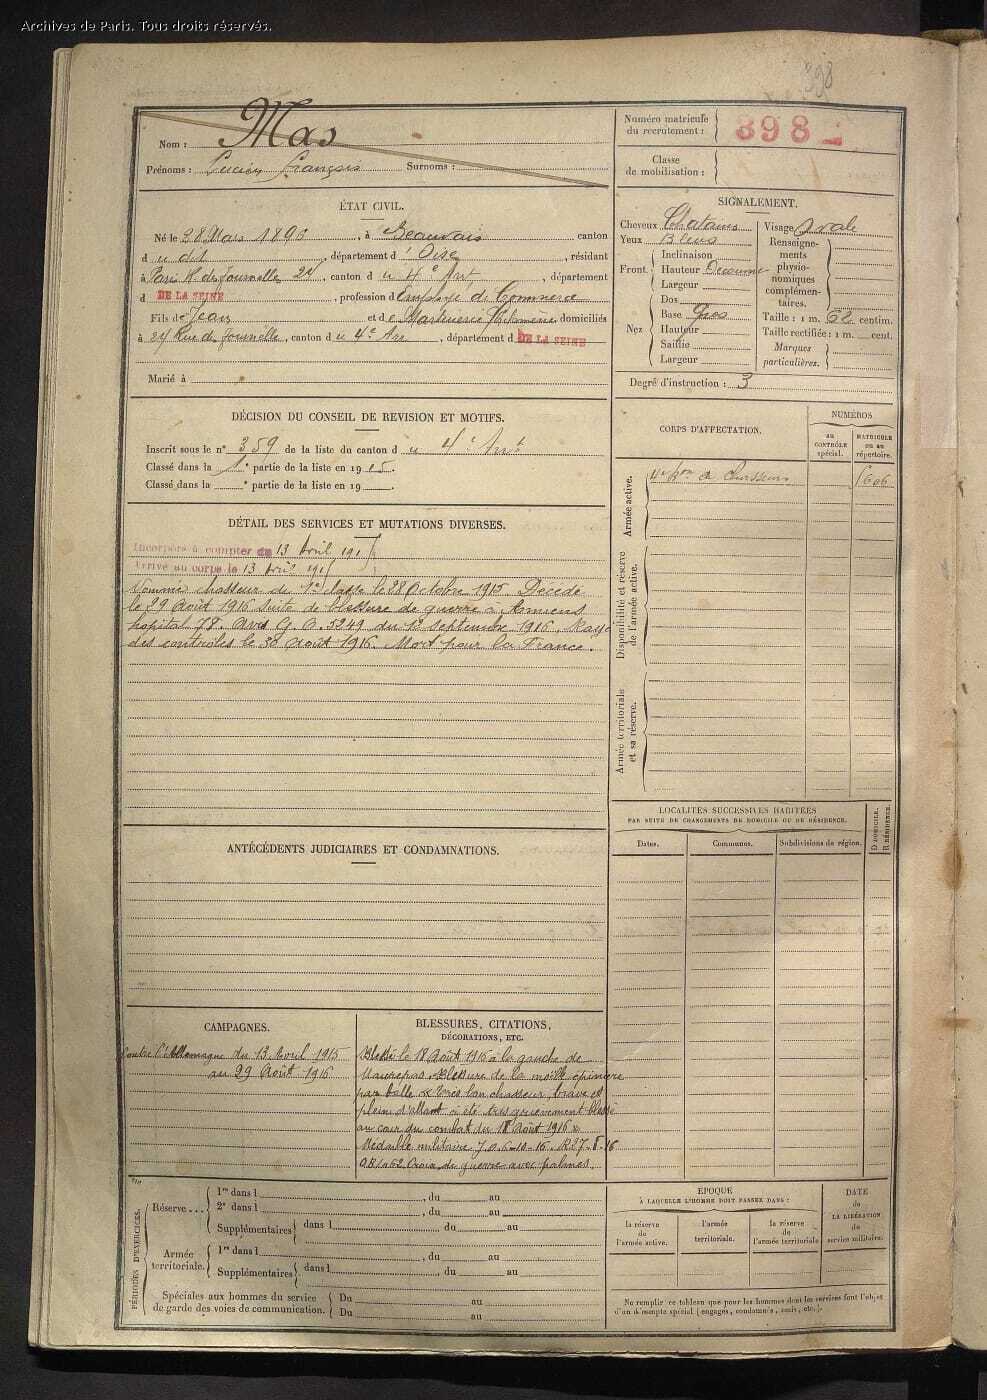 Archives de Paris. Tous droits réservés.
398
Nom : Mas
Prénoms : Lucien François Surnoms :
Numéro matricule
du recrutement : 398
Classe
de mobilisation :
ÉTAT CIVIL.
Né le 28 Mars 1896, à Beauvais canton
du dit, département d'Oise, résidant
à Paris R. des Tournelles 24, canton du 4e Arrt, département
d DE LA SEINE, profession d'Employé de Commerce
Fils de Jean et de domiciliés
à 24 Rue des Tournelles, canton du 4e Arr, département d DE LA SEINE
Marié à
SIGNALEMENT.
Cheveux Chatains
Yeux Bleus
Front.
Inclinaison
Hauteur
Largeur
Nez
Dos
Base Gros
Hauteur
Saillie
Largeur
Visage Ovale
Renseigne-
ments
physio-
nomiques
complémen-
taires.
Taille : 1 m. 62 centim.
Taille rectifiée : 1 m. cent.
Marques
particulières.
Degré d'instruction : 3
DÉCISION DU CONSEIL DE REVISION ET MOTIFS.
Inscrit sous le n° 359 de la liste du canton du 4e Arrt
Classé dans la 1e partie de la liste en 1915.
Classé dans la e partie de la liste en 19
DÉTAIL DES SERVICES ET MUTATIONS DIVERSES.
Incorporé à compter du 13 Avril 1915
Arrivé au corps le 13 Avril 1915
Nommé chasseur de 1e classe le 28 Octobre 1915. Décédé
le 29 Août 1916 suite de blessure de guerre à Amiens
hopital 78. Avis G. O. 5249 du 12 Septembre 1916. Rayé
des contrôles le 30 Août 1916. Mort pour la France.
CORPS D'AFFECTATION.
NUMÉROS
au
CONTRÔLE
spécial.
MATRICULE
ou au
répertoire.
Armée active.
4e Bon de Chasseurs
Disponibilité et réserve
de l'armée active.
Armée territoriale
et sa réserve.
LOCALITÉS SUCCESSIVES HABITÉES
PAR SUITE DE CHANGEMENTS DE DOMICILE OU DE RÉSIDENCE.
Dates.
Communes.
Subdivisions de région.
D DOMICILE.
R RÉSIDENCE.
ANTÉCÉDENTS JUDICIAIRES ET CONDAMNATIONS.
CAMPAGNES.
Contre l'Allemagne du 13 Avril 1915
au 29 Août 1916
BLESSURES, CITATIONS,
DÉCORATIONS, ETC.
Blessé le 18 Août 1916 à la gauche de
Maurepas. Blessure de la moëlle épinière
par balle « Très bon chasseur, brave et
plein d'allant a été très grièvement blessé
au cour du combat du 18 Août 1916 »
Médaille militaire J.O. 6-10-16. R 27-8-16
Croix de guerre avec palmes.
PÉRIODES D'EXERCICES.
Réserve...
1re dans l , du au
2e dans l , du au
Supplémentaires dans l , du au
Armée
territoriale.
1re dans l , du au
Supplémentaires dans l , du au
Spéciales aux hommes du service
de garde des voies de communication.
Du au
Du au
ÉPOQUE
À LAQUELLE L'HOMME DOIT PASSER DANS :
la réserve
de
l'armée active.
l'armée
territoriale.
la réserve
de
l'armée territoriale
DATE
de
LA LIBÉRATION
du
service militaire.
Ne remplir ce tableau que pour les hommes dont les services font l'objet
d'un décompte spécial (engagés, condamnés, omis, etc.).